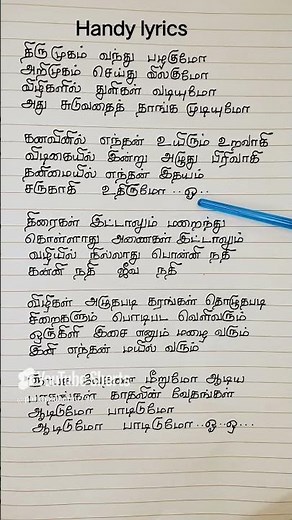 Handy lyrics
திருமுகம் வந்து பழகுமோ
அறிமுகம் செய்து விலகுமோ
விழிகளில் துளிகள் வடியுமோ
அது சுடுவதைத் தாங்க முடியுமோ
கனவினில் எந்தன் உயிரும் உறவாகி
விடிகையில் இன்று அழுது பிரிவாகி
தனிமையில் எந்தன் இதயம்
சருகாகி உதிருமோ ..ஓ..
திரைகள் இட்டாலும் மறைந்து
கொள்ளாது அணைகள் இட்டாலும்
வழியில் நில்லாது பொன்னி நதி
கன்னி நதி ஜீவ நதி
விழிகள் அழுதபடி கரங்கள் தொழுதபடி
சிறைகளும் பொடிபட வெளிவரும்
ஒருகிளி இசை எனும் மழை வரும்
இனி எந்தன் மயில் வரும்
YouTube Shorts
மீறுமோ ஆடிய
பாதங்கள் காதலின் வேதங்கள்
ஆடிடுமோ பாடிடுமோ
ஆடிடுமோ பாடிடுமோ ..ஓ..ஓ...